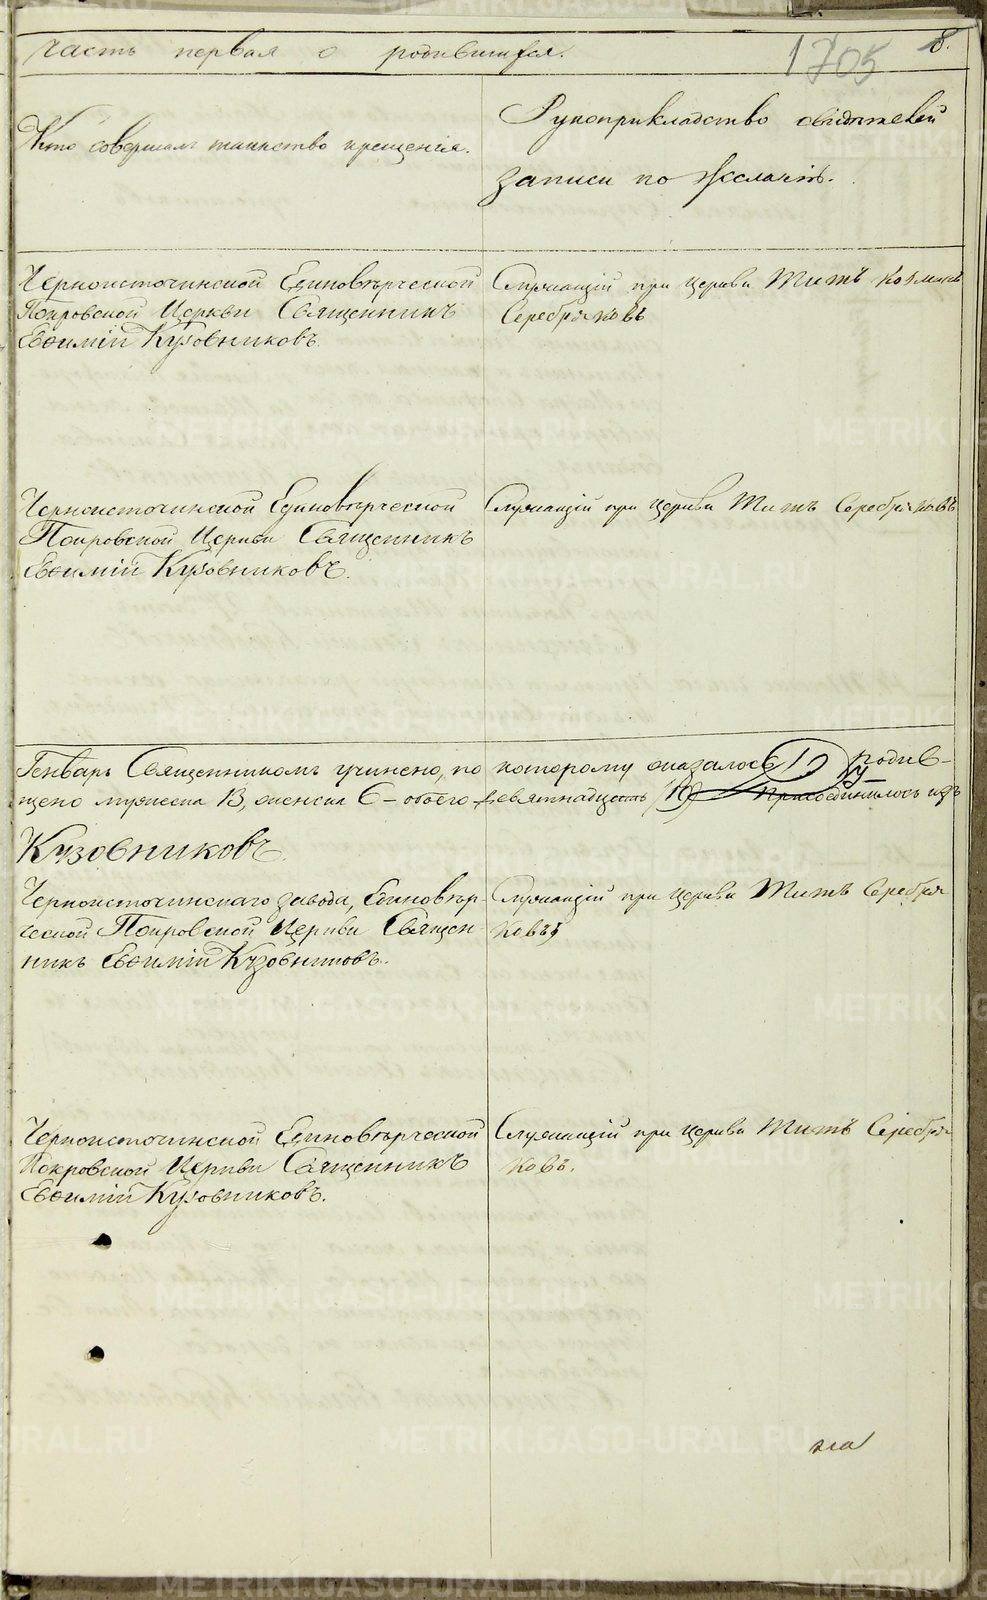 Часть первая о родившихся.
1705
8.
Кто совершалъ таинство крещенія.
Рукоприкладство свидѣтелей
записи по желанію.
Черноисточинской Единовѣрческой
Покровской Церкви Священникъ
Евѳимій Кузовниковъ.
Служащій при церкви Титъ Козминъ
Серебряковъ
Черноисточинской Единовѣрческой
Покровской Церкви Священникъ
Евѳимій Кузовниковъ.
Служащій при церкви Титъ Серебряковъ
Генварь Священникомъ учинено, по которому оказалось родив-
щено мужеска 13, женска 6 – обоего девятнадцать (19) Присоединилось изъ
Кузовниковъ.
Черноисточинскаго завода, Единовѣр-
ческой Покровской Церкви Священ-
никъ Евѳимій Кузовниковъ.
Служащій при церкви Титъ Серебря
ковъ
Черноисточинской Единовѣрческой
Покровской Церкви Священникъ
Евѳимій Кузовниковъ.
Служащій при церкви Титъ Серебря
ковъ.
METRIKI.GASO-URAL.RU